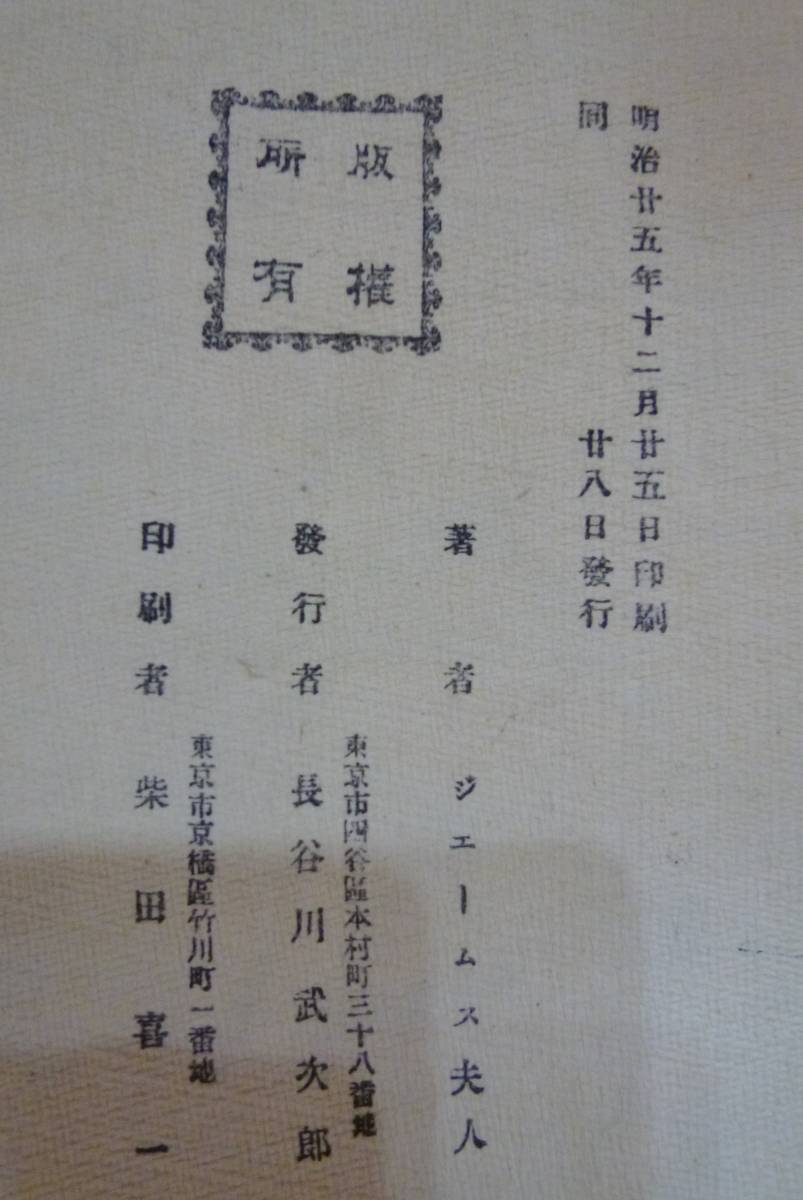 明治廿五年十二月廿五日印刷
同 廿八日發行
版權
所有
著者 ジェームス夫人
東京市四谷區本村町三十八番地
發行者 長谷川武次郎
東京市京橋區竹川町一番地
印刷者 柴田喜一